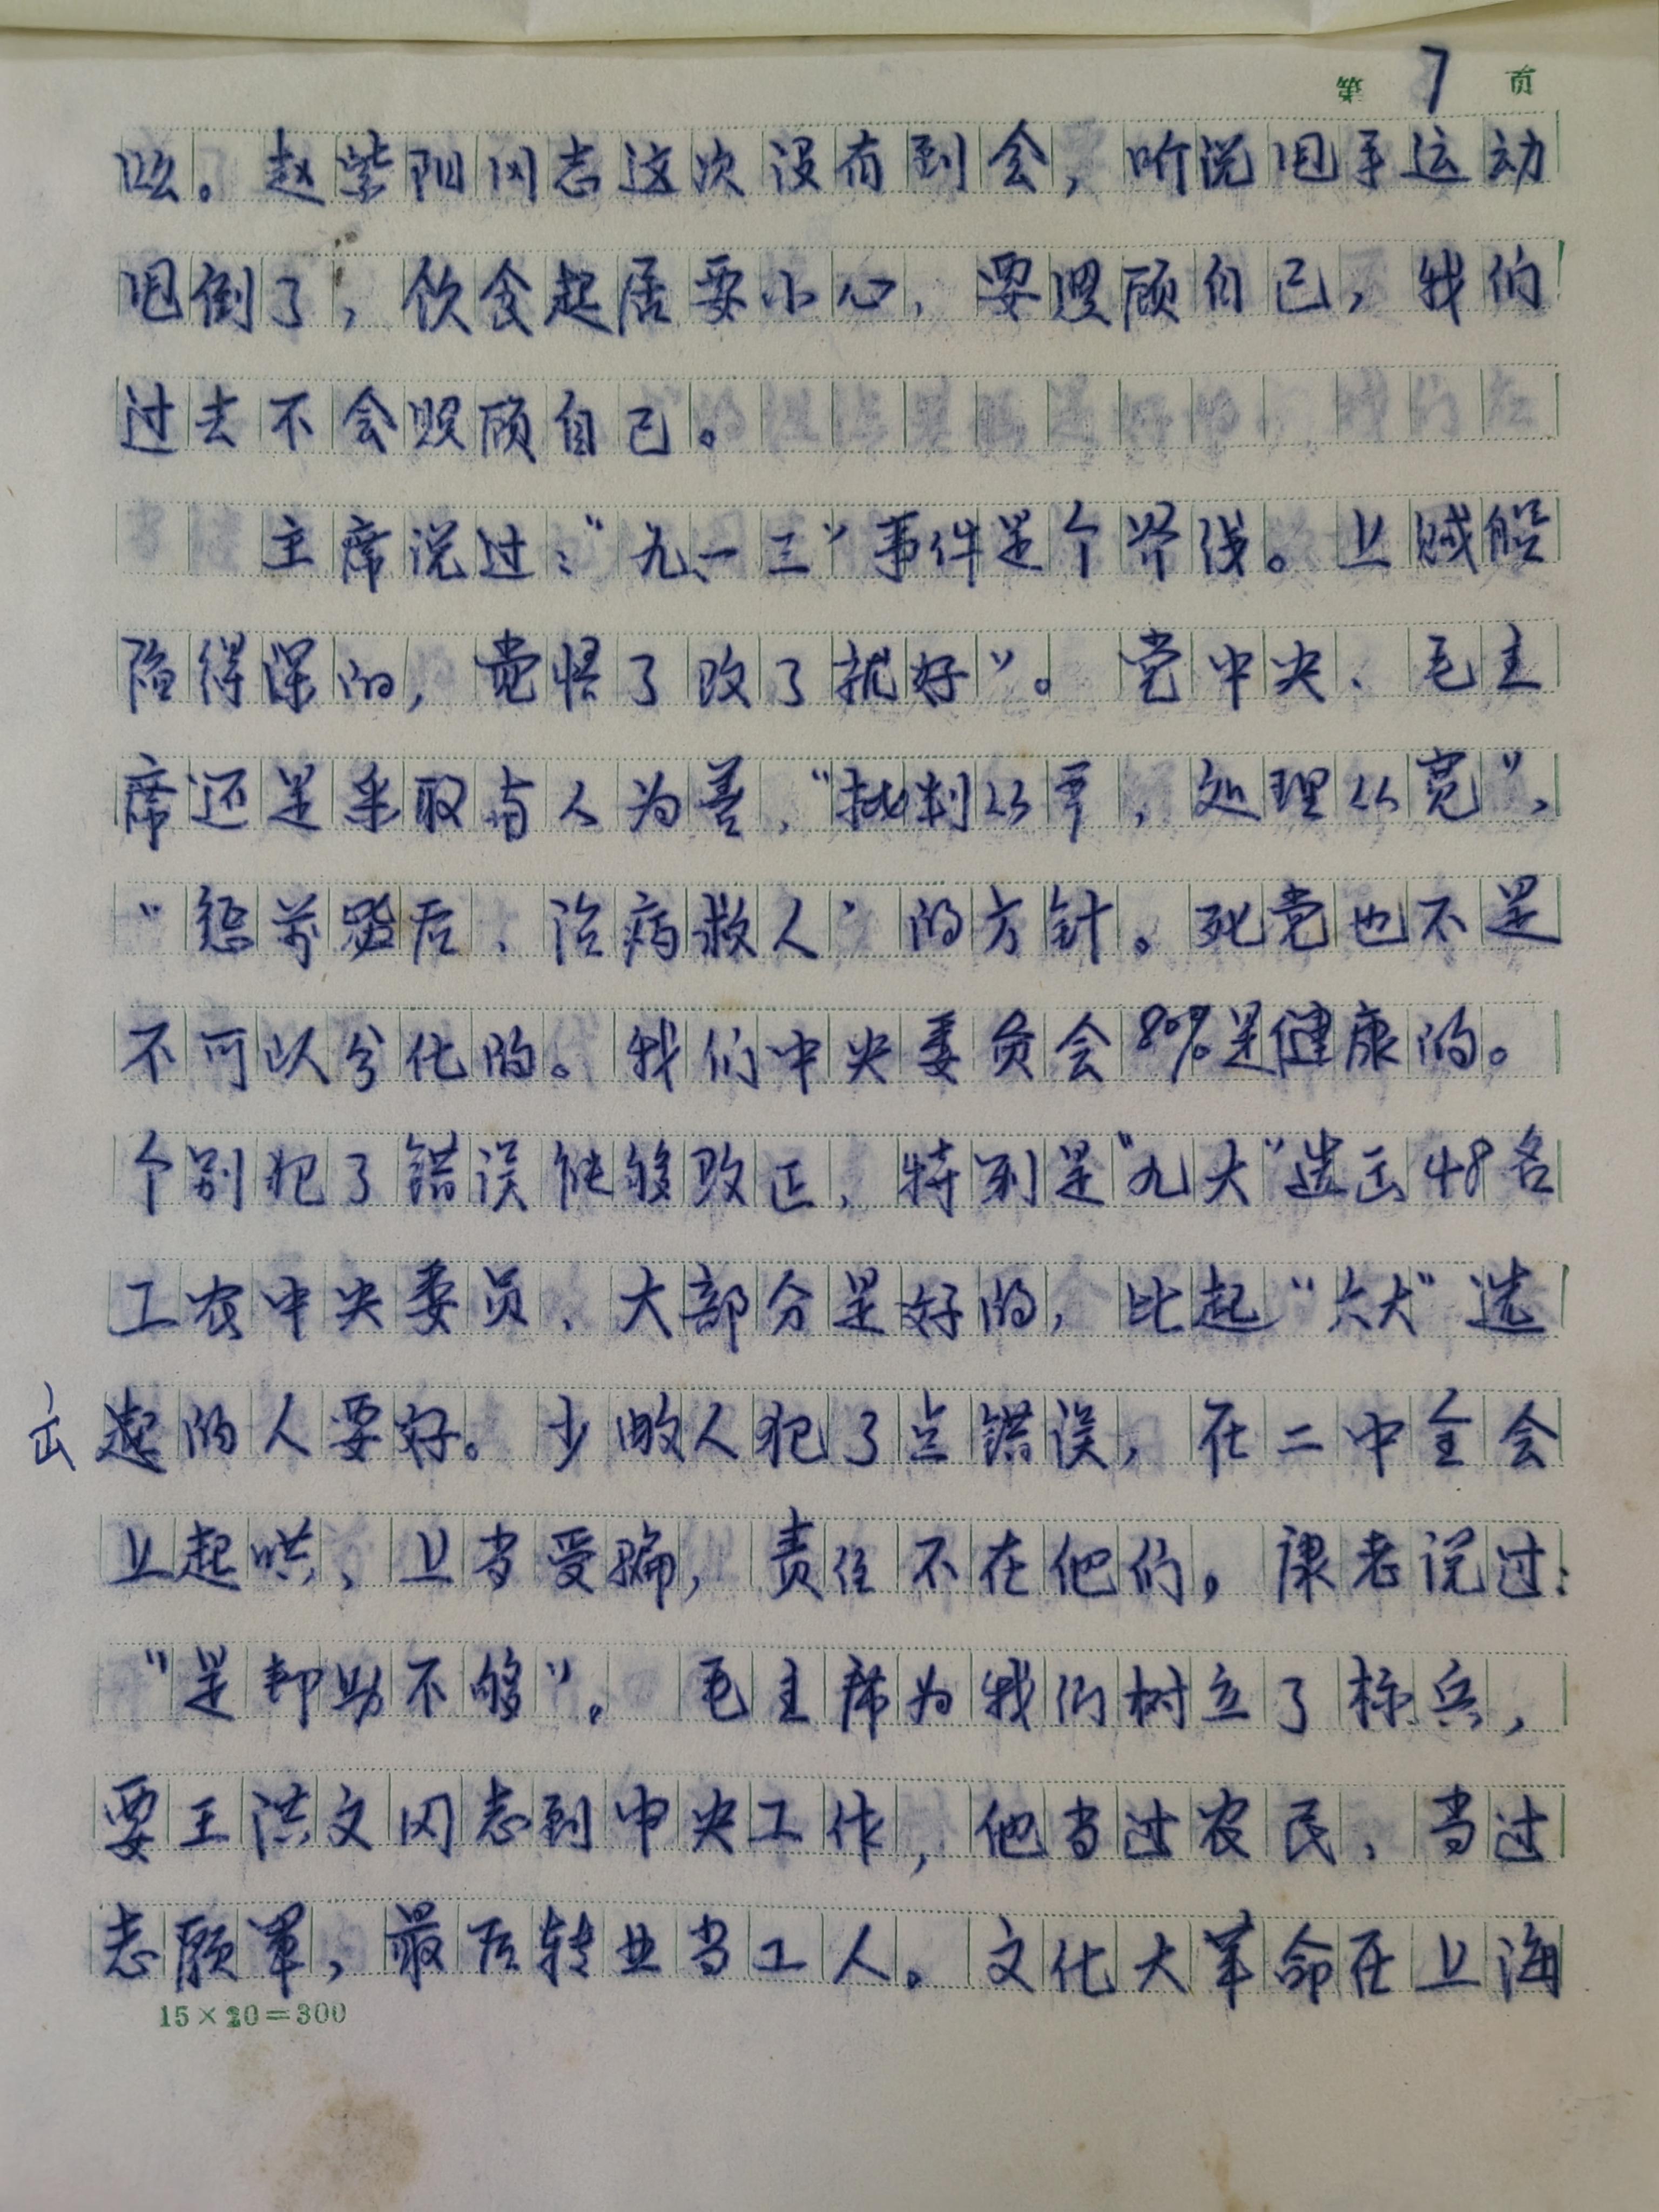 第 7 页
眩。赵紫阳同志这次没有到会，听说甩手运动
甩倒了，饮食起居要小心，要照顾自己，我们
过去不会照顾自己。
主席说过：“九一三”事件是个界线。上贼船
陷得深的，觉悟了改了就好”。党中央、毛主
席还是采取与人为善，“批判从严，处理从宽”，
“惩前毖后、治病救人”的方针。死党也不是
不可以分化的。我们中央委员会80%是健康的。
个别犯了错误能够改正，特别是“九大”选出48名
工农中央委员、大部分是好的，比起“六大”选
出起的人要好。少数人犯了点错误，在二中全会
上起哄、上当受骗，责任不在他们。康老说过：
“是帮助不够”。毛主席为我们树立了标兵，
要王洪文同志到中央工作，他当过农民、当过
志愿军，最后转业当工人。文化大革命在上海
15×20=300